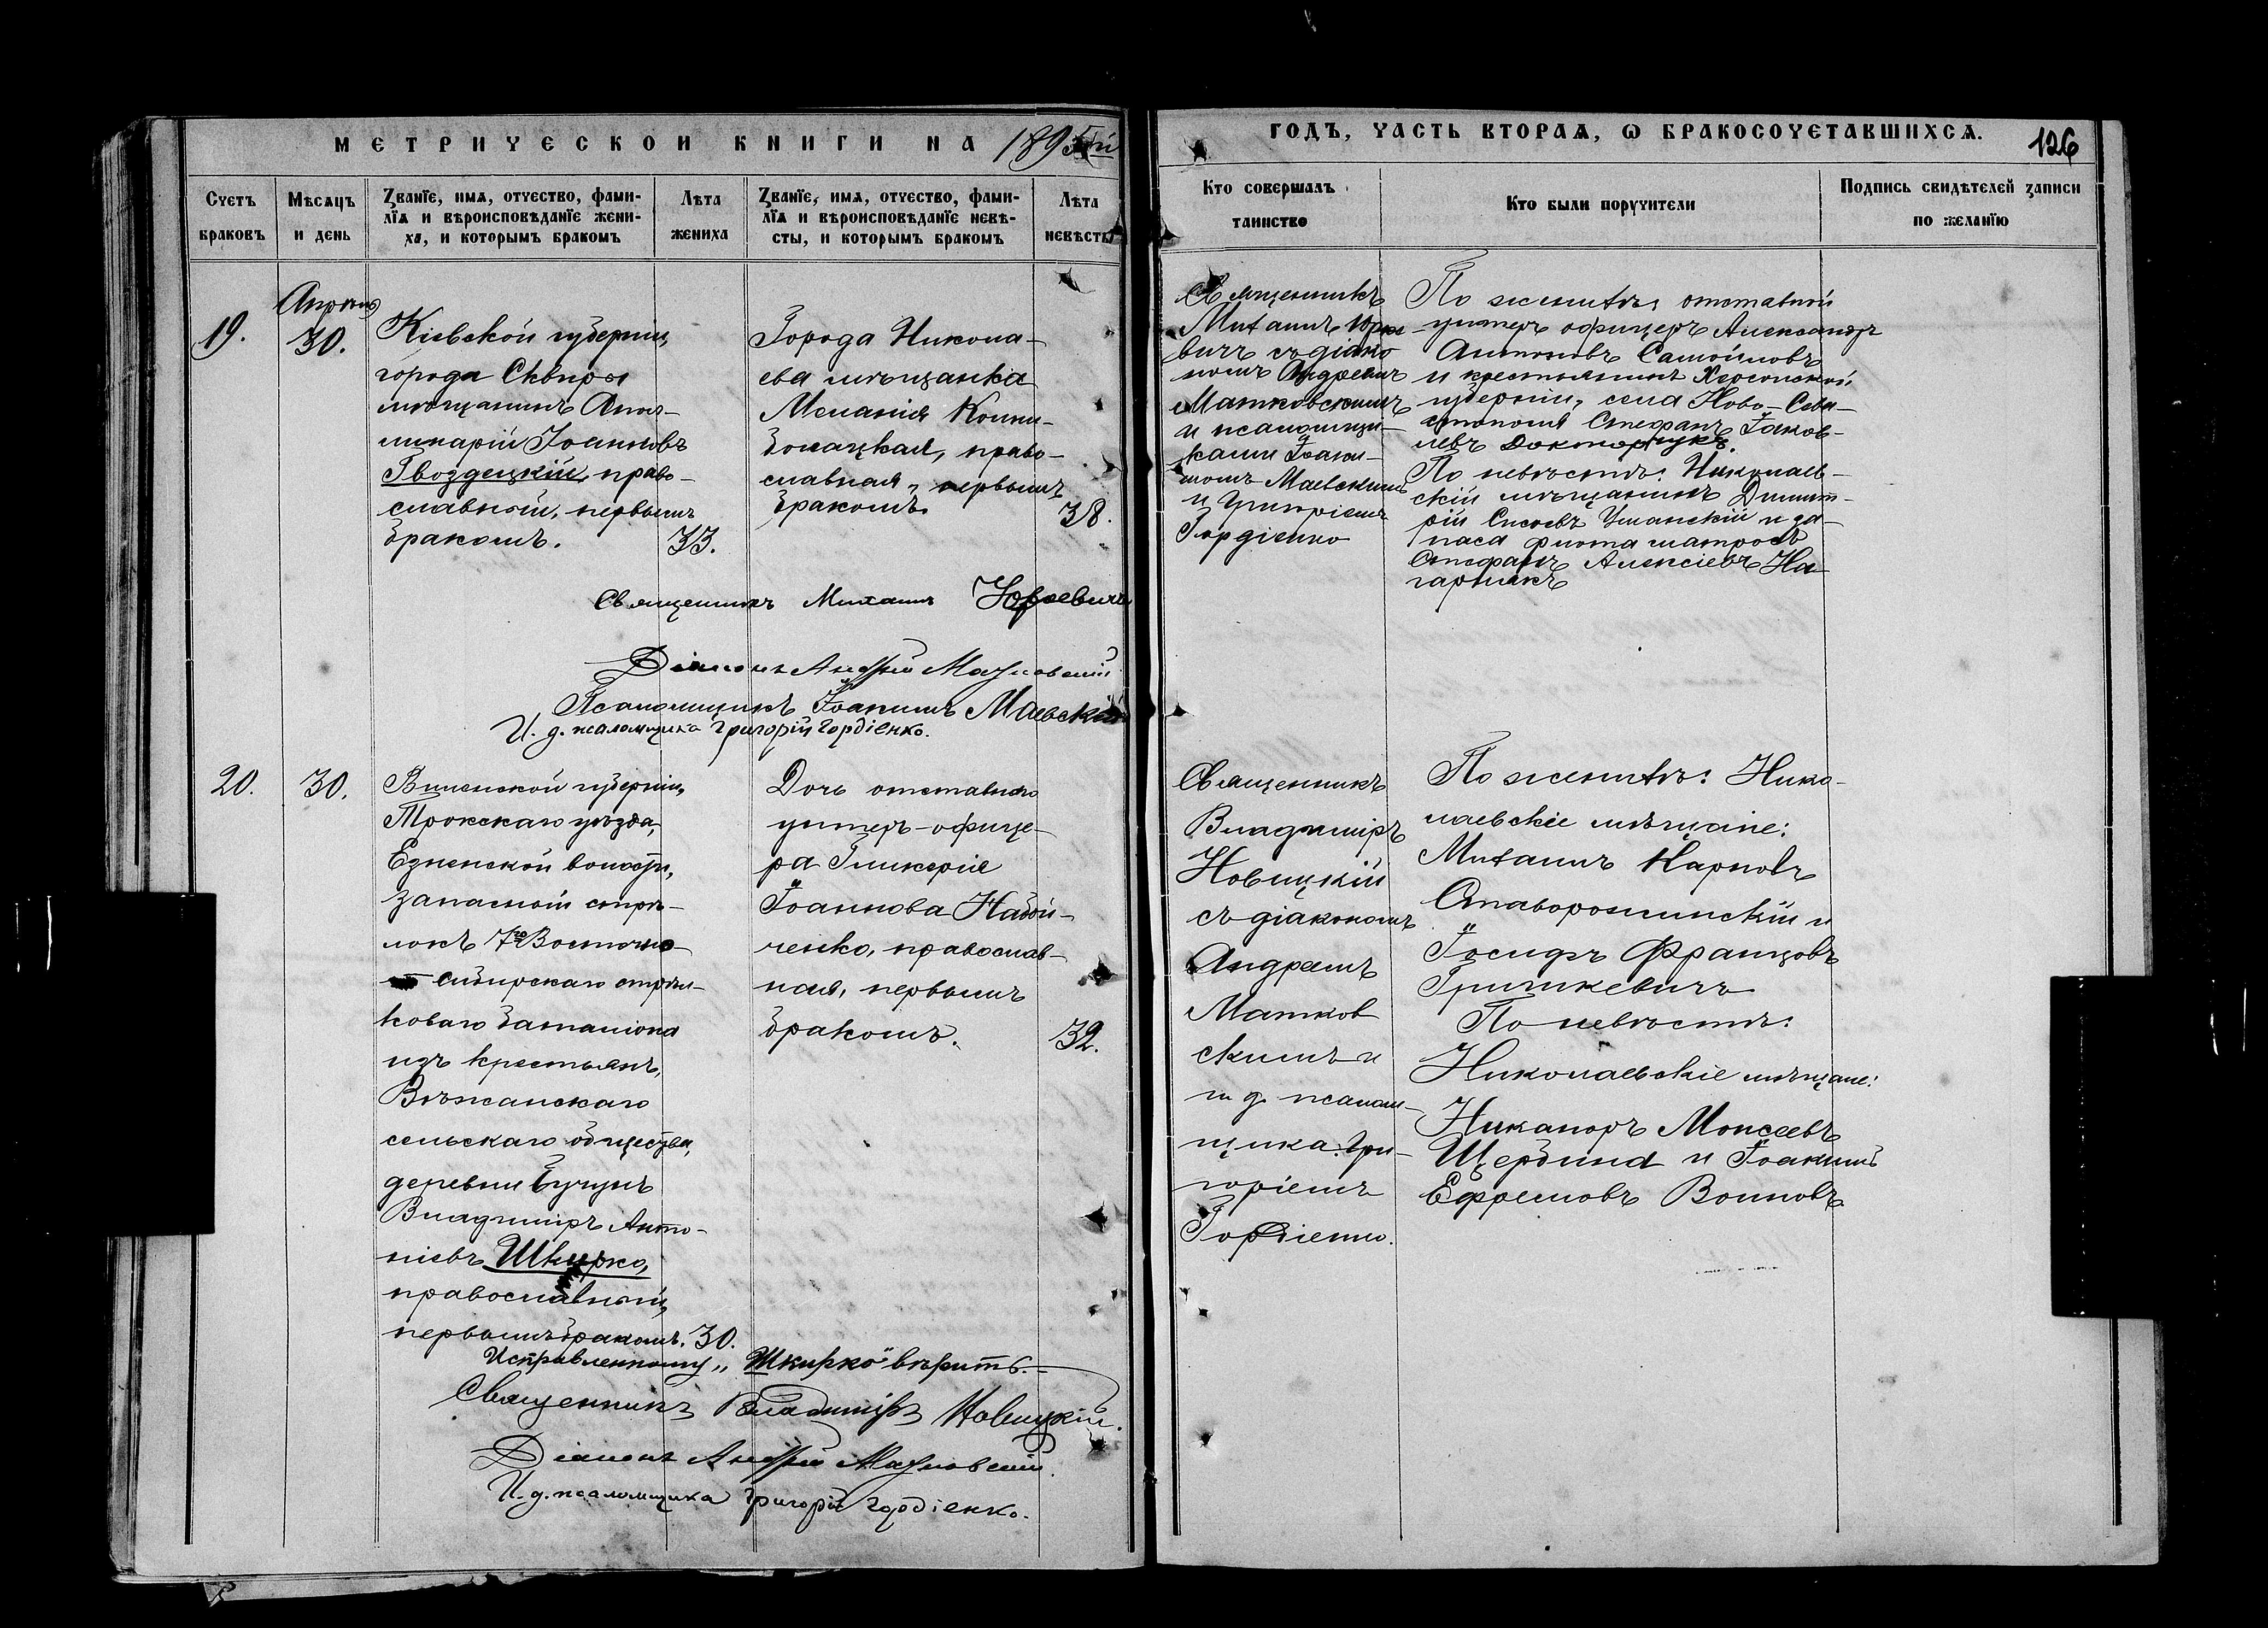 МЕТРИЧЕСКОЙ КНИГИ НА 1895й
ГОДЪ, ЧАСТЬ ВТОРАЯ, Ѡ БРАКОСОЧЕТАВШИХСЯ.
126
Счетъ браковъ
Мѣсяцъ и день
Званїе, имя, отчество, фами-
лїя и вѣроисповѣданїе жени-
ха, и которымъ бракомъ
Лѣта жениха
Званїе, имя, отчество, фами-
лїя и вѣроисповѣданїе невѣ-
сты, и которымъ бракомъ
Лѣта невѣсты
Кто совершалъ
таинство
Кто были поручители
Подпись свидѣтелей записи
по желанїю
19.
Апрѣля
30.
Кіевской губерніи,
города Сквиры
мѣщанинъ Апол-
линарій Іоанновъ
Гвоздецкій, право-
славный, первымъ
бракомъ.
33.
Города Никола-
ева мѣщанка
Меланія
православная, первымъ
бракомъ.
38.
Священникъ
Михаилъ Юрке-
вичъ съ діако
номъ Андреемъ
Матковскимъ
и псаломщи-
ками Іоаки-
момъ Маевскимъ
и Григоріемъ
Гордіенко
По женихѣ: отставной
унтеръ офицеръ Александръ
Антоновъ Самойловъ
и крестьянинъ Херсонской
губерніи, села Ново-Сева-
стополя Стефанъ Іаков-
левъ Докторчукъ.
По невѣстѣ: Николаев-
скій мѣщанинъ Димит-
рій Сисоевъ Уманскій и за-
паса флота матросъ
Стефанъ Алексіевъ На
гарнякъ
Священникъ Михаилъ Юркевичъ
Діаконъ Андрей Матковскій
Псаломщикъ Іоакимъ Маевскій
И. д. псаломщика Григорій Гордіенко.
20.
30.
Виленской губерніи,
Трокскаго уѣзда,
Езненской волости,
запасный стрѣ-
локъ 7го Восточно-
сибирскаго стрѣл-
коваго баталіона
изъ крестьянъ,
Вѣжанскаго
сельскаго общества,
деревни Бучунъ
Владиміръ Анто-
ніевъ Шкирко,
православный,
первымъ бракомъ. 30.
Дочь отставного
унтеръ-офице-
ра Гликерія
Іоаннова Набой-
ченко, православ-
ная, первымъ
бракомъ.
32.
Священникъ
Владиміръ
Новицкій
съ діакономъ
Андреемъ
Матков
скимъ и
и. д. псалом-
щика Гри-
горіемъ
Гордіенко.
По женихѣ: Нико-
лаевскіе мѣщане:
Михаилъ Карповъ
Ставорошинскій и
Іосифъ Францовъ
Гришкевичъ
По невѣстѣ:
Николаевскіе мѣщане:
Никаноръ Моисеевъ
Щербина и Іоакимъ
Ефремовъ Воиновъ
Исправленному „Шкирко" вѣрить.
Священникъ Владиміръ Новицкій.
Діаконъ Андрей Матковскій.
И. д. псаломщика Григорій Гордіенко.